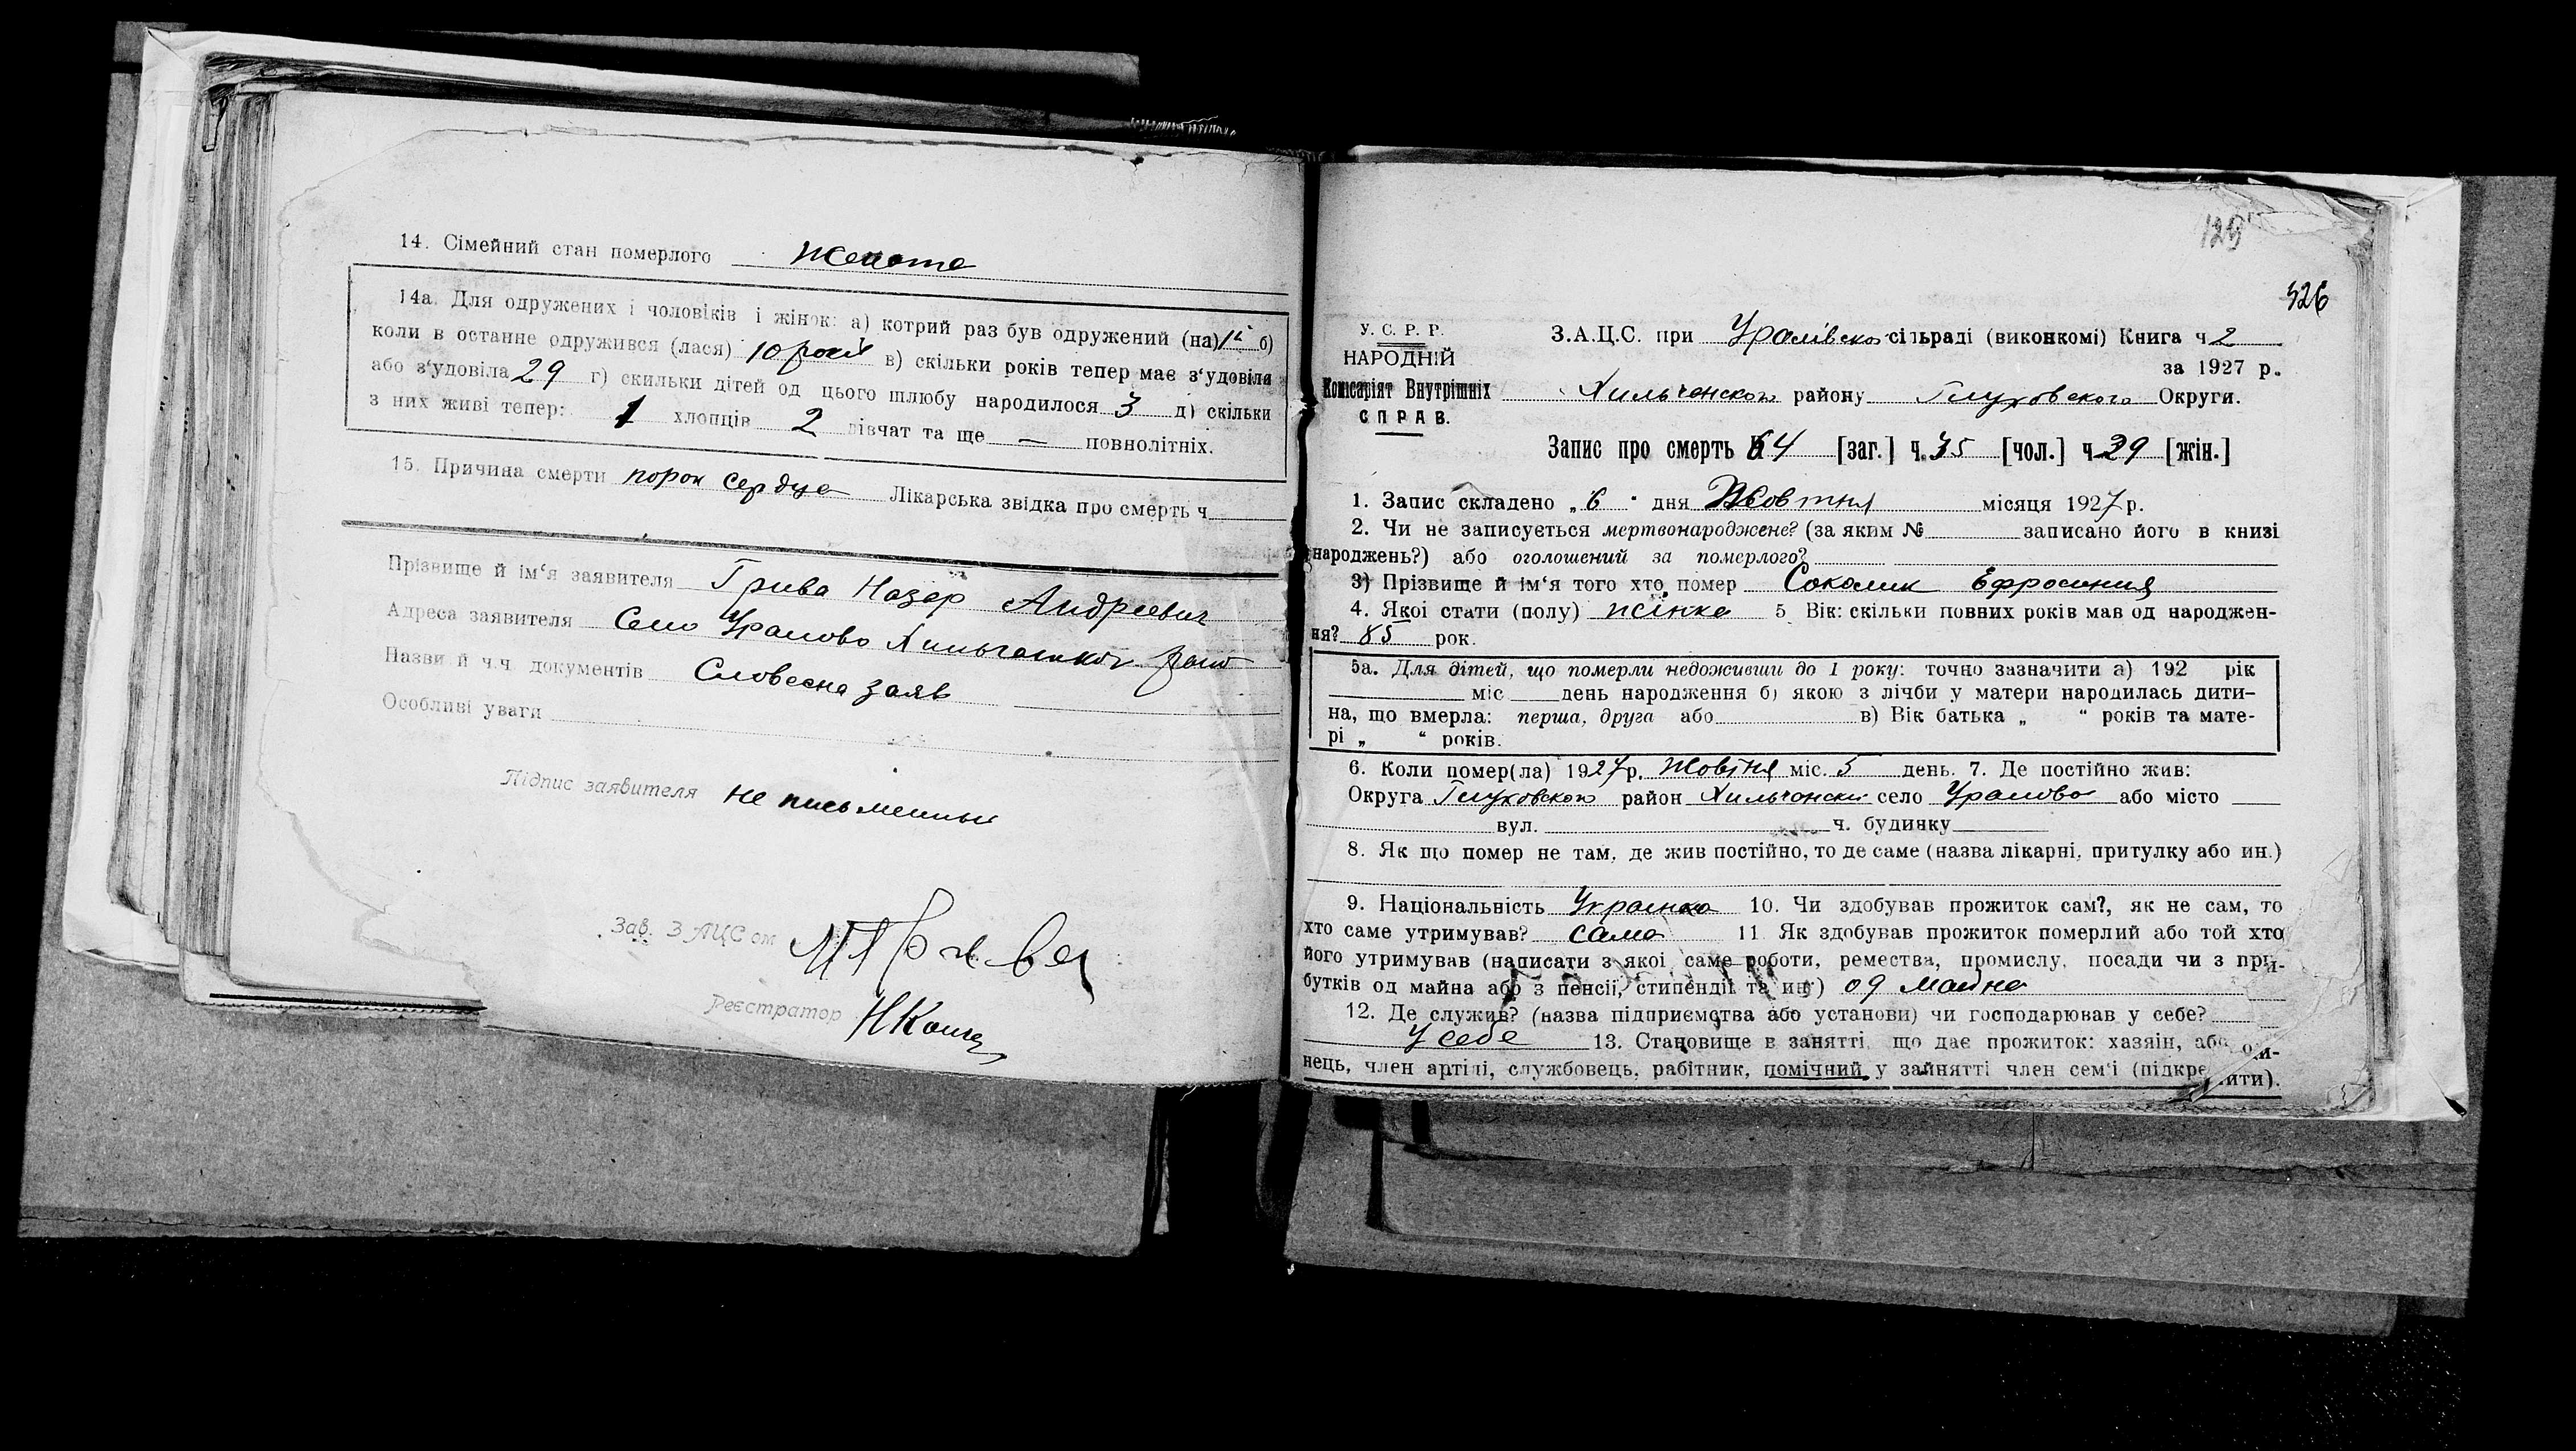 14. Сімейний стан померлого Жената
14а. Для одружених і чоловіків і жінок: а) котрий раз був одружений (на) 1й б)
коли в останне одружився (лася) 10 років в) скільки років тепер має з‘удовіла
або з‘удовіла 29 г) скильки дітей од цього шлюбу народилося 3 д) скільки
з них живі тепер: 1 хлопців 2 дівчат та ще — повнолітніх.
15. Причина смерти порок сердца Лікарська звідка про смерть ч
Прізвище й ім‘я заявителя Грива Назар Андреевич
Адреса заявителя Село Уралово
Назви й ч.ч. документів Словесна заяв
Особливі уваги
Підпис заявителя не письменный
Зав. ЗАЦСом
Реєстратор
129
326
У. С. Р. Р.
НАРОДНІЙ
Комісаріят Внутрішніх
СПРАВ.
З.А.Ц.С. при Уралівско сільраді (виконкомі) Книга ч 2
за 1927 р.
Хильчанского району Глуховского Округи.
Запис про смерть Ч 64 [заг.] ч. 35 [чол.] ч 29 [жін.]
1. Запис складено „ 6 “ дня Жовтня місяця 1927 р.
2. Чи не записується мертвонароджене? (за яким № записано його в книзі
народжень?) або оголошений за померлого?
3) Прізвище й ім‘я того хто помер Соколик Ефросиния
4. Якої стати (полу) жінка 5. Вік: скільки повних років мав од народжен-
ня? 85 рок.
5а. Для дітей, що померли недоживши до 1 року: точно зазначити а) 192 рік
міс день народження б) якою з лічби у матери народилась дити-
на, що вмерла: перша, друга або в) Вік батька „ “ років та мате-
рі „ “ років.
6. Коли помер(ла) 1927 р. Жовтня міс. 5 день. 7. Де постійно жив:
Округа Глуховского район Хильчанский село Уралово або місто
вул. ч. будинку
8. Як що помер не там, де жив постійно, то де саме (назва лікарні, притулку або ин.)
9. Національність Украинка 10. Чи здобував прожиток сам?, як не сам, то
хто саме утримував? сама 11. Як здобував прожиток померлий або той хто
його утримував (написати з якої саме роботи, ремества, промислу, посади чи з при-
бутків од майна або з пенсії, стипендії та ин.) од майна
12. Де служив? (назва підприємства або установи) чи господарював у себе?
у себе 13. Становище в занятті, що дає прожиток: хазяін, або оди-
нець, член артілі, службовець, рабітник, помічний у зайнятті член сем‘ї (підкреслити).